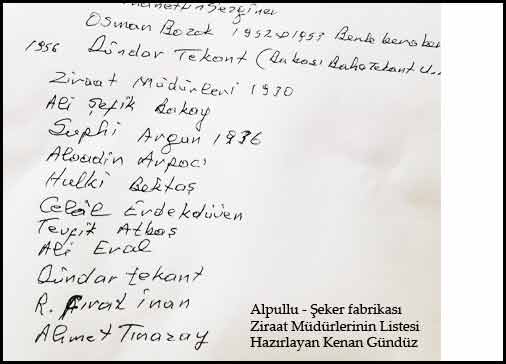 Osman Bozok 1952-1953
1956 Dündar Tekant (Babası Baha Tekant
Ziraat Müdürleri 1930
Ali Şefik Bakay
Suphi Argun 1936
Alaadin Arpacı
Hulki Bektaş
Celâl Erdekdüven
Tevfik Atbaş
Ali Eral
Dündar Tekant
R. Fırat İnan
Ahmet Tınazay
Alpullu - Şeker fabrikası
Ziraat Müdürlerinin Listesi
Hazırlayan Kenan Gündüz